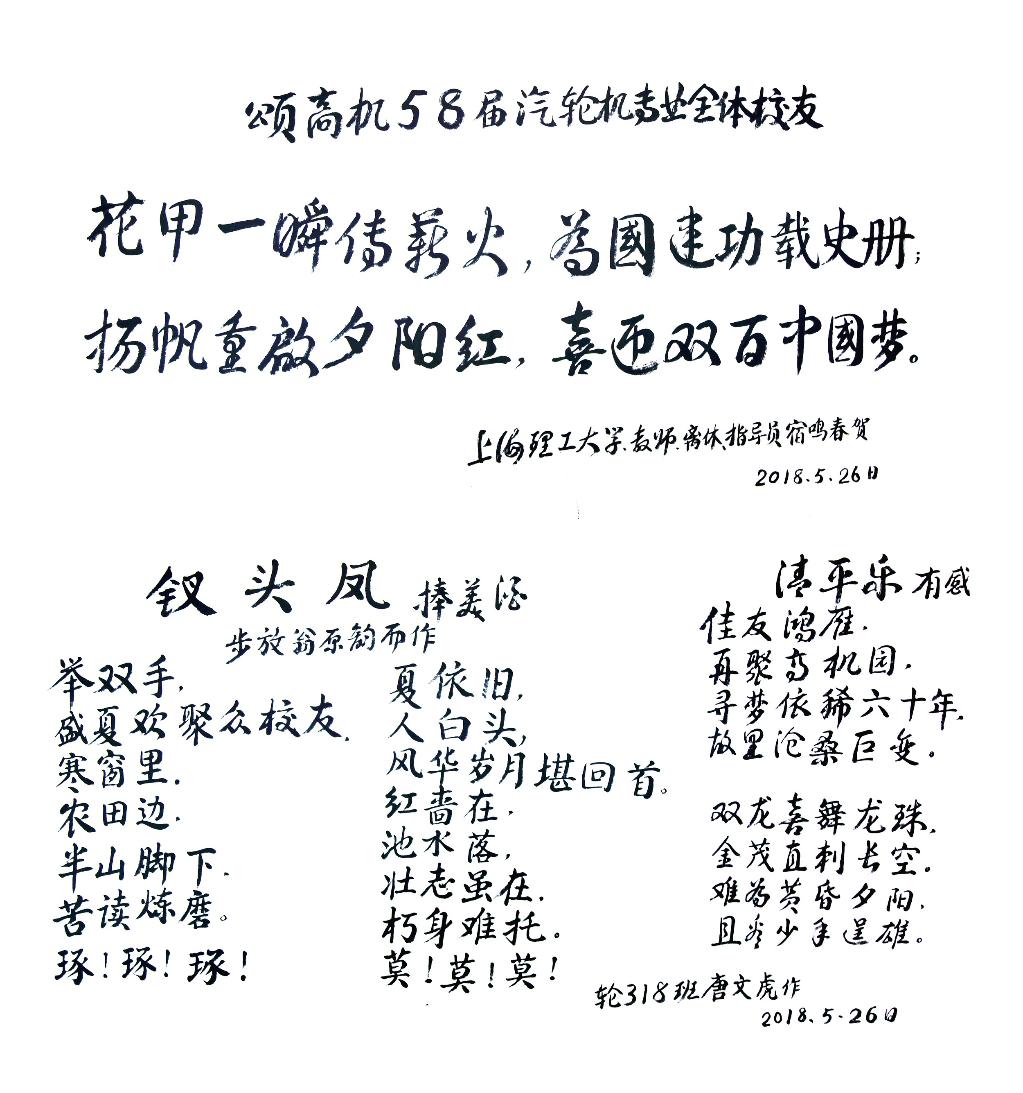 颂高机58届汽轮机专业全体校友
花甲一瞬传薪火,為國建功载史册;
扬帆重啟夕阳红,喜迎双百中國梦。
上海理工大学教师、离休、指导员宿鸣春贺
2018.5.26日
钗头凤 捧美酒
步放翁原韵而作
举双手,
盛夏欢聚众校友.
寒窗里.
农田边.
半山脚下.
苦读炼磨。
琢!琢!琢!
夏依旧,
人白头,
风华岁月堪回首。
红蔷在.
池水落,
壮志虽在.
朽身难托.
莫!莫!莫!
清平乐 有感
佳友鸿雁.
再聚高机园.
寻梦依稀六十年.
故里沧桑巨变.
双龙喜舞龙珠.
金茂直刺长空.
难为黄昏夕阳.
且米少年逞雄。
轮318班唐文虎作
2018.5-26日